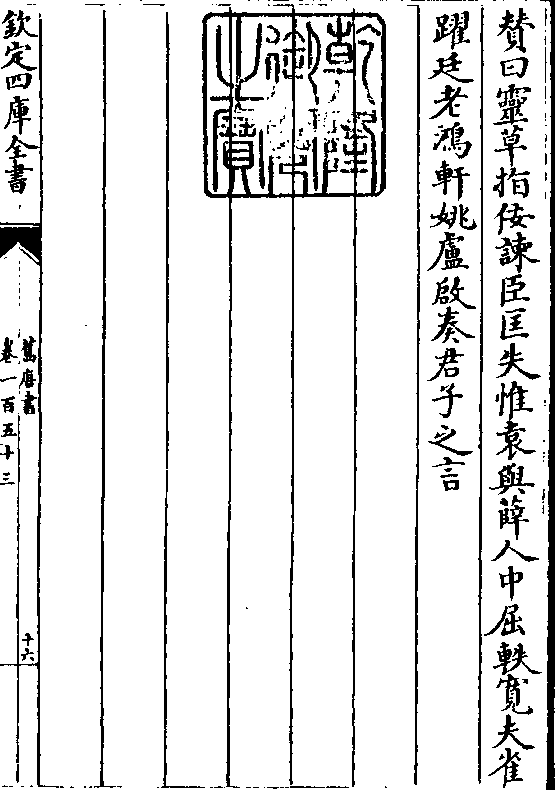 賛曰靈草指佞諫臣匡失惟袁與薛人中屈軼寛夫雀
躍廷老鴻軒姚盧啟奏君子之言
乾隆御覽之寶
欽定四庫全書
舊唐書
卷一百五十三
十六